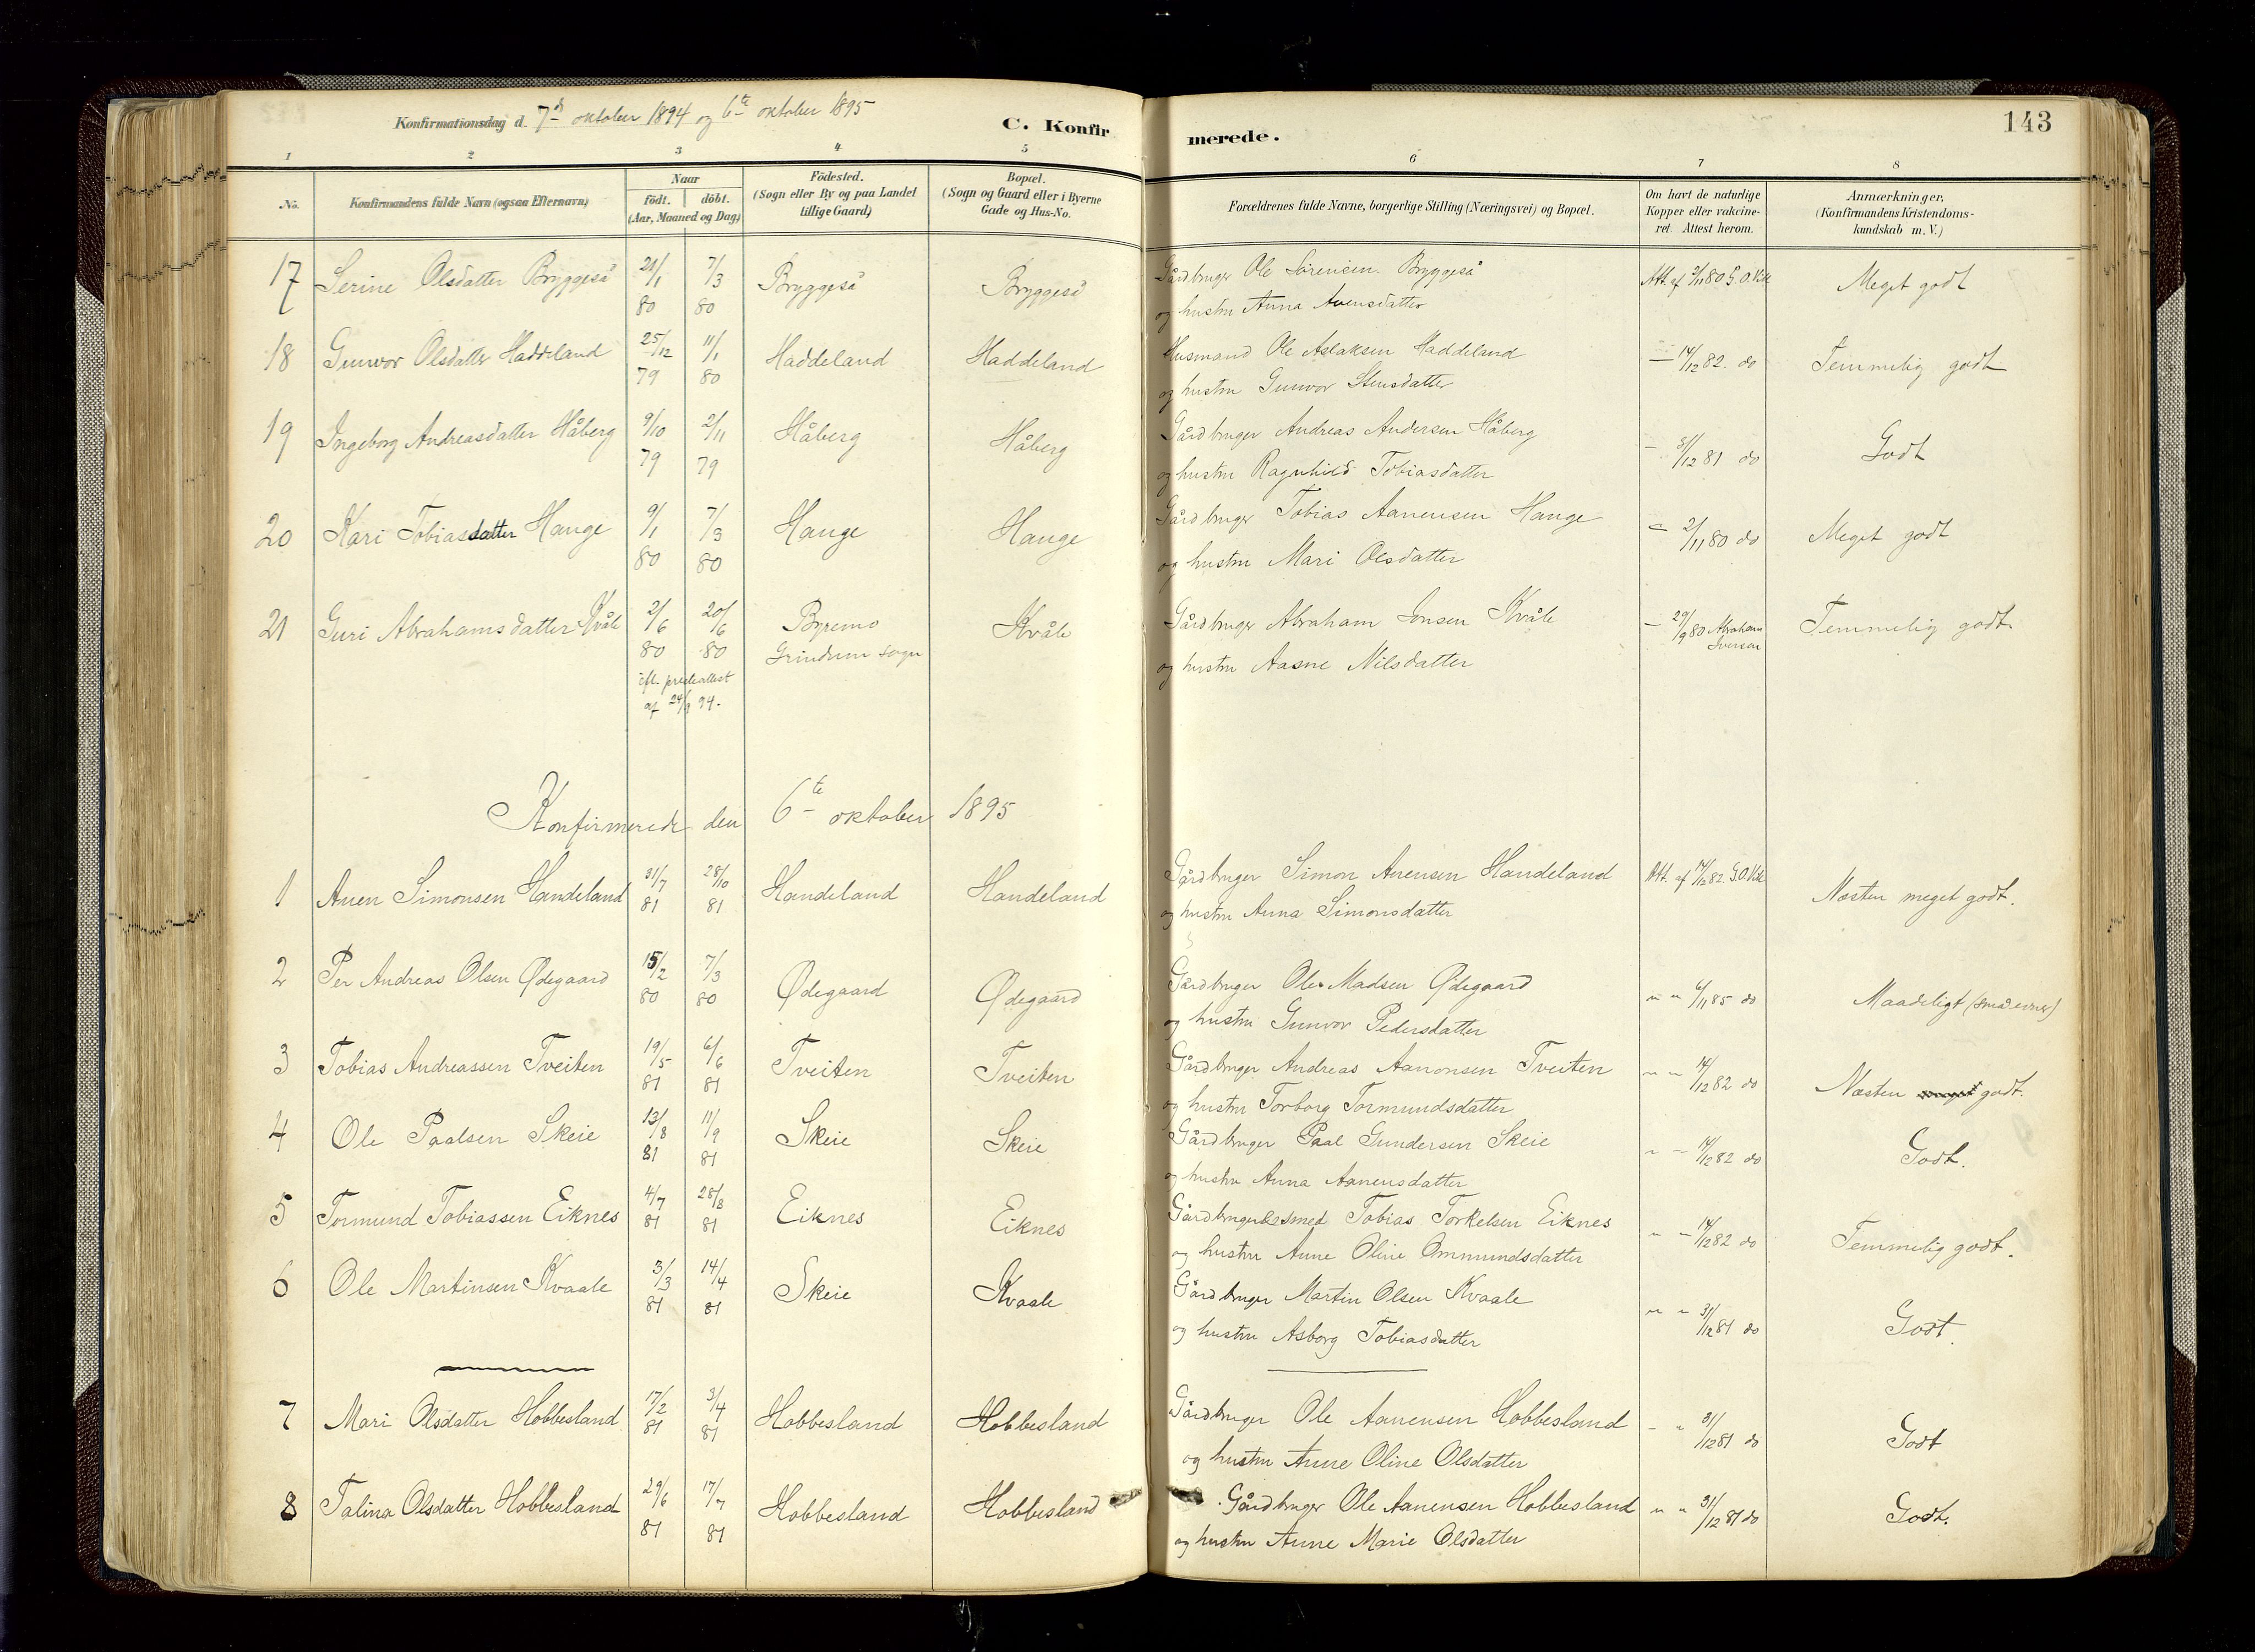 Konfirmationsdag d. 7de oktober 1894 og 6te oktober 1895
C. Konfir merede.
143
1 2 3 4 5 6 7 8
No.
Konfirmandens fulde Navn (ogsaa Efternavn)
Naar
födt. döbt.
(Aar, Maaned og Dag)
Födested.
(Sogn eller By og paa Landet
tillige Gaard)
Bopæl.
(Sogn og Gaard eller i Byerne
Gade og Hus-No.
Forældrenes fulde Navne, borgerlige Stilling (Næringsvei) og Bopæl.
Om havt de naturlige
Kopper eller vakcine-
ret. Attest herom.
Anmærkninger,
(Konfirmandens Kristendoms-
kundskab m. V.)
17 Serine Olsdatter Bryggeså 21/1 80 7/3 80 Bryggeså Bryggeså Gårdbruger Ole Sørensen Bryggeså Att. af 2/11 80 G.O. Meget godt
og hustru Anna Avensdatter
18 Gunvor Olsdatter Haddeland 25/12 79 11/1 80 Haddeland Haddeland Husmand Ole Aslaksen Haddeland — 14/12 82. do Temmelig godt
og hustru Gunvor Stensdatter
19 Ingeborg Andreasdatter Håberg 9/10 79 2/11 79 Håberg Håberg Gårdbruger Andreas Andersen Håberg — 31/12 81 do Godt
og hustru Ragnhild Tobiasdatter
20 Kari Tobiasdatter Hauge 9/1 80 7/3 80 Hauge Hauge Gårdbruger Tobias Aanensen Hauge — 2/11 80 do Meget godt
og hustru Mari Olsdatter
21 Guri Abrahamsdatter Kvåle 2/6 80 20/6 80 Byremo Kvåle Gårdbruger Abraham Jonsen Kvåle — 29/9 80 Abraham Iversen Temmelig godt.
Grindum sogn
ifl. presteattest
af 24/9 94.
og hustru Aasne Nilsdatter
Konfirmerede den 6te oktober 1895
1 Anen Simonsen Handeland 31/7 81 28/10 81 Handeland Handeland Gårdbruger Simon Anensen Handeland Att. af 14/12 82. G.O. Næsten meget godt.
og hustru Anna Simonsdatter
2 Per Andreas Olsen Ødegaard 15/2 80 7/3 80 Ødegaard Ødegaard Gårdbruger Ole Madsen Ødegaard " " 6/11 85 do Maadeligt (små evner)
og hustru Gunvor Pedersdatter
3 Tobias Andreassen Tveiten 19/5 81 6/6 81 Tveiten Tveiten Gårdbruger Andreas Aanonsen Tveiten " " 14/12 82 do Næsten meget godt.
og hustru Torborg Tormundsdatter
4 Ole Paalsen Skeie 13/8 81 11/9 81 Skeie Skeie Gårdbruger Paal Gundersen Skeie " " 14/12 82 do Godt.
og hustru Anna Aanensdatter
5 Tormund Tobiassen Eiknes 4/7 81 28/8 81 Eiknes Eiknes Gårdbruger & smed Tobias Torkelsen Eiknes " " 14/12 82 do Temmelig godt.
og hustru Anne Oline Ommundsdatter
6 Ole Martinsen Kvaale 3/3 81 14/4 81 Skeie Kvaale Gårdbruger Martin Olsen Kvaale " " 31/12 81 do Godt.
og hustru Asborg Tobiasdatter
7 Mari Olsdatter Hobbesland 17/2 81 3/4 81 Hobbesland Hobbesland Gårdbruger Ole Aanensen Hobbesland " " 31/12 81 do Godt
og hustru Anne Oline Olsdatter
8 Talina Olsdatter Hobbesland 29/6 81 17/7 81 Hobbesland Hobbesland Gårdbruger Ole Aanensen Hobbesland " " 31/12 81 do Godt.
og hustru Anne Marie Olsdatter